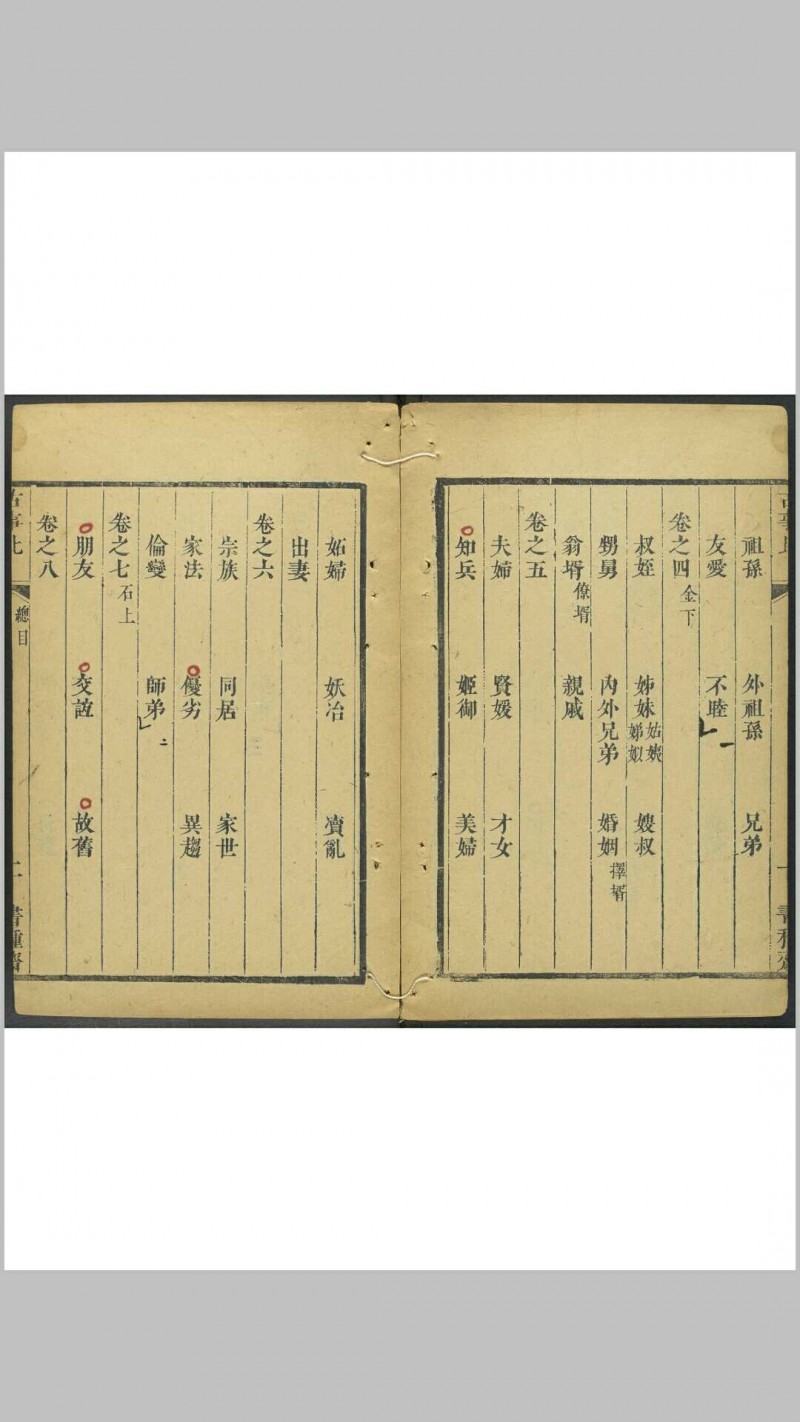 祖孫 外祖孫 兄弟
友愛 不睦
卷之四 金下
叔姪 姊妹 姑嫂 娣姒 嫂叔
甥舅 內外兄弟 婚姻 擇壻
翁壻 僚壻 親戚
卷之五
夫婦 賢媛 才女
知兵 姬御 美婦
妬婦 妖冶 瀆亂
出妻
卷之六
宗族 同居 家世
家法 優劣 異趨
倫變 師弟
卷之七 石上
朋友 交誼 故舊
卷之八
古事比 總目 二 書種齋